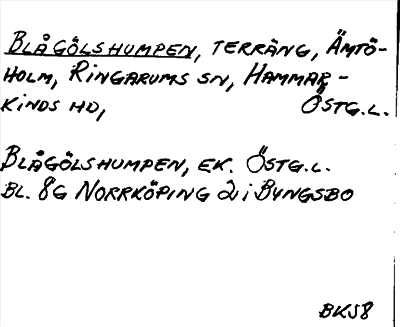 BLÅGÖLSHUMPEN, TERRÄNG, ÄMTÖ-
HOLM, RINGARUMS SN, HAMMAR-
KINDS HD, ÖSTG.L.
BLÅGÖLSHUMPEN, EK. ÖSTG.L.
BL. 8G NORRKÖPING 2 i BYNGSBO
BKS8